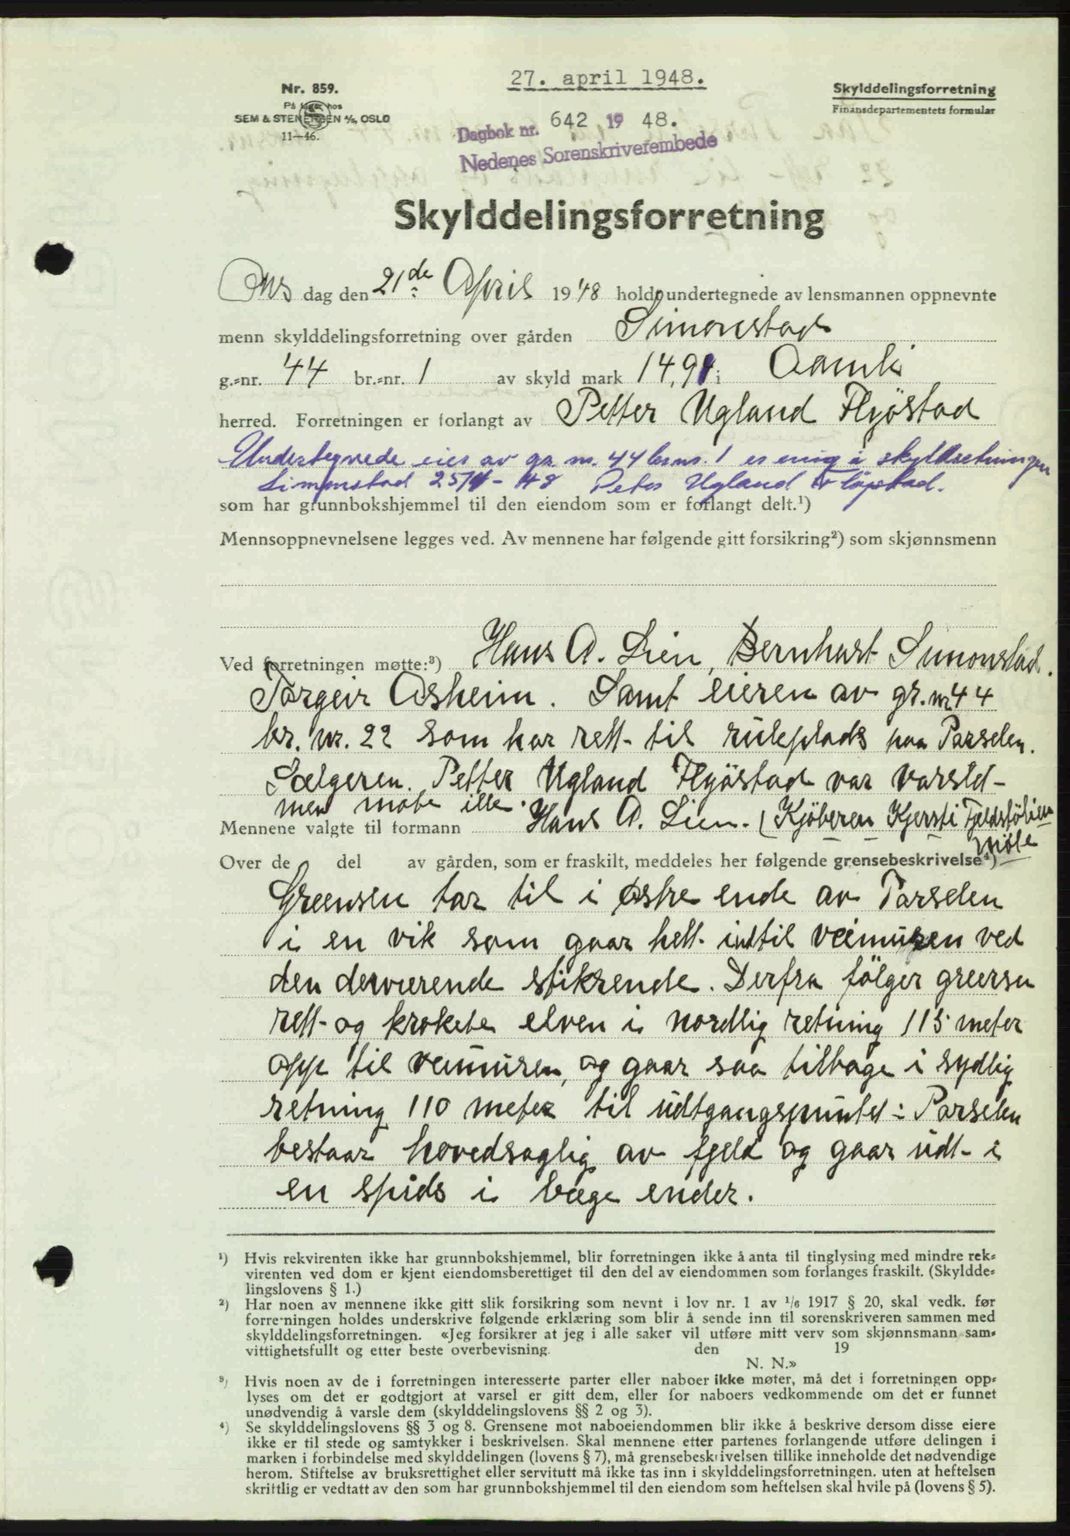 27. april 1948.
Nr. 859.
På lager hos
SEM & STENERSEN A/S, OSLO
11—46.
Skylddelingsforretning
Finansdepartementets formular
Dagbok nr. 642 19 48.
Nedenes Sorenskriverembede
Skylddelingsforretning
Ons dag den 21de April 1948 holdt undertegnede av lensmannen oppnevnte
menn skylddelingsforretning over gården Simonstad
g.-nr. 44 br.-nr. 1 av skyld mark 14,91 i Aamli
herred. Forretningen er forlangt av Petter Ugland Fløstad
Undertegnede eier av gr. nr. 44 br.nr. 1 er enig i skyldsetningen
Simonstad 25/4-48 Peter Ugland Fløystad.
som har grunnbokshjemmel til den eiendom som er forlangt delt.¹)
Mennsoppnevnelsene legges ved. Av mennene har følgende gitt forsikring²) som skjønnsmenn
Ved forretningen møtte:³) Hans A. Lien, Bernhart Simonstad.
Torgeir Asheim. Samt eieren av gr. nr 44
br. nr. 22 som har rett til ruleplads paa Parselen.
Sælgeren Petter Ugland Fløstad var varslet-
men møtte ikke.
Mennene valgte til formann Hans A. Lien. (Kjøberen Kjersti
møtte
Over de del av gården, som er fraskilt, meddeles her følgende grensebeskrivelse⁴)
Greensen tar til i østre ende av Parselen
i en vik som gaar hett indtil veimuren ved
den derværende stikrende. Derfra følger greensen
rett og krokete elven i nordlig retning 115 meter
opp til veimuren, og gaar saa tilbage i sydlig
retning 110 meter til udtgangspuntet: Parselen
bestaar hovedsaglig av fjeld og gaar udt i
en spids i bæge ender.
¹) Hvis rekvirenten ikke har grunnbokshjemmel, blir forretningen ikke å anta til tinglysing med mindre rek-
virenten ved dom er kjent eiendomsberettiget til den del av eiendommen som forlanges fraskilt. (Skyldde-
lingslovens § 1.)
²) Har noen av mennene ikke gitt slik forsikring som nevnt i lov nr. 1 av 1/6 1917 § 20, skal vedk. før
forretningen holdes underskrive følgende erklæring som blir å sende inn til sorenskriveren sammen med
skylddelingsforretningen. «Jeg forsikrer at jeg i alle saker vil utføre mitt verv som skjønnsmann sam-
vittighetsfullt og etter beste overbevisning. den 19
N. N.»
³) Hvis noen av de i forretningen interesserte parter eller naboer ikke møter, må det i forretningen opp-
lyses om det er godtgjort at varsel er gitt dem, eller for naboers vedkommende om det er funnet
unødvendig å varsle dem (skylddelingslovens §§ 2 og 3).
⁴) Se skylddelingslovens §§ 3 og 8. Grensene mot naboeiendommen blir ikke å beskrive dersom disse eiere
ikke er til stede og samtykker i beskrivelsen. Skal mennene etter partenes forlangende utføre delingen i
marken i forbindelse med skylddelingen (lovens § 7), må grensebeskrivelsen tillike inneholde det nødvendige
herom. Stiftelse av bruksrettighet eller servitutt må ikke tas inn i skylddelingsforretningen. uten at heftelsen
skriftlig er vedtatt av den som har grunnbokshjemmel til den eiendom som heftelsen skal hvile på (lovens § 5).